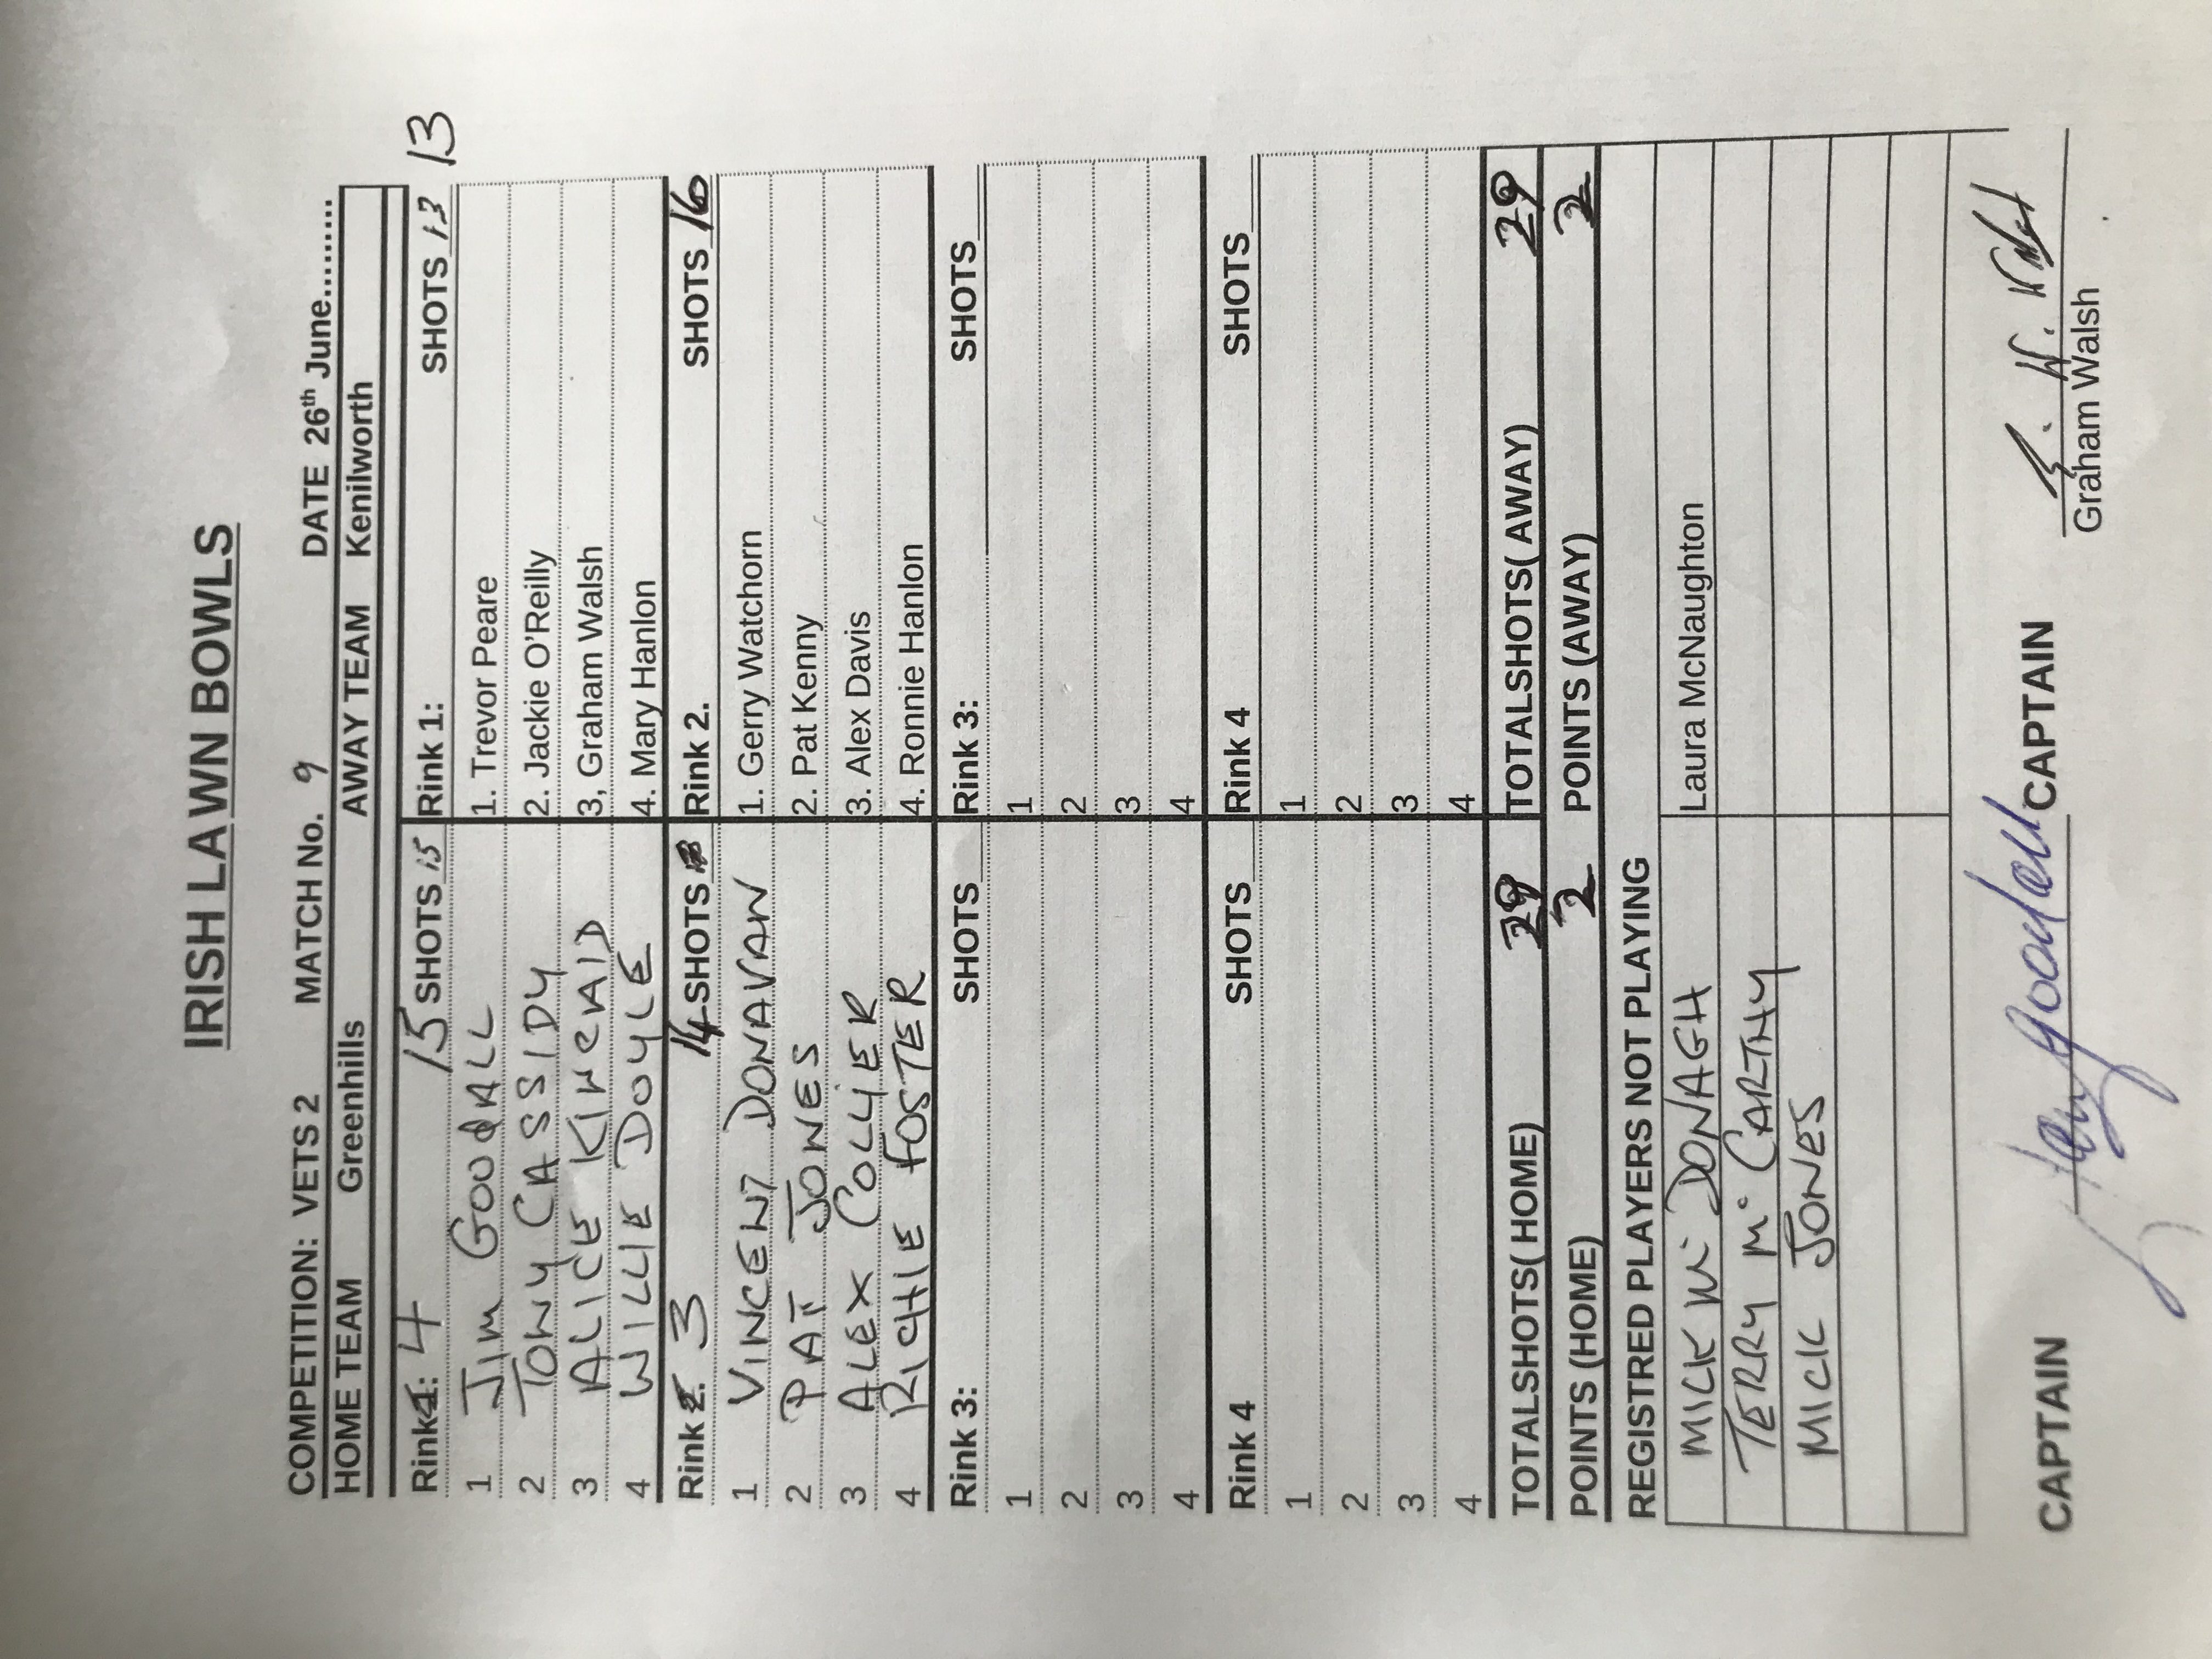 IRISH LAWN BOWLS
COMPETITION: VETS 2 MATCH No. 9 DATE 26th June........
HOME TEAM Greenhills AWAY TEAM Kenilworth
Rink 4 15 SHOTS 15 Rink 1: SHOTS 13 13
1 JIM GOODALL 1. Trevor Peare
2 TONY CASSIDY 2. Jackie O'Reilly
3 ALICE KINCAID 3, Graham Walsh
4 WILLIE DOYLE 4. Mary Hanlon
Rink 3 14 SHOTS Rink 2. SHOTS 16
1 VINCENT DONAVAN 1. Gerry Watchorn
2 PAT JONES 2. Pat Kenny
3 ALEX COLLIER 3. Alex Davis
4 RICHIE FOSTER 4. Ronnie Hanlon
Rink 3: SHOTS Rink 3: SHOTS
1 1
2 2
3 3
4 4
Rink 4 SHOTS Rink 4 SHOTS
1 1
2 2
3 3
4 4
TOTALSHOTS( HOME) 29 TOTALSHOTS( AWAY) 29
POINTS (HOME) 2 POINTS (AWAY) 2
REGISTRED PLAYERS NOT PLAYING
MICK Mc DONAGH Laura McNaughton
TERRY Mc CARTHY
MICK JONES
CAPTAIN CAPTAIN
Graham Walsh